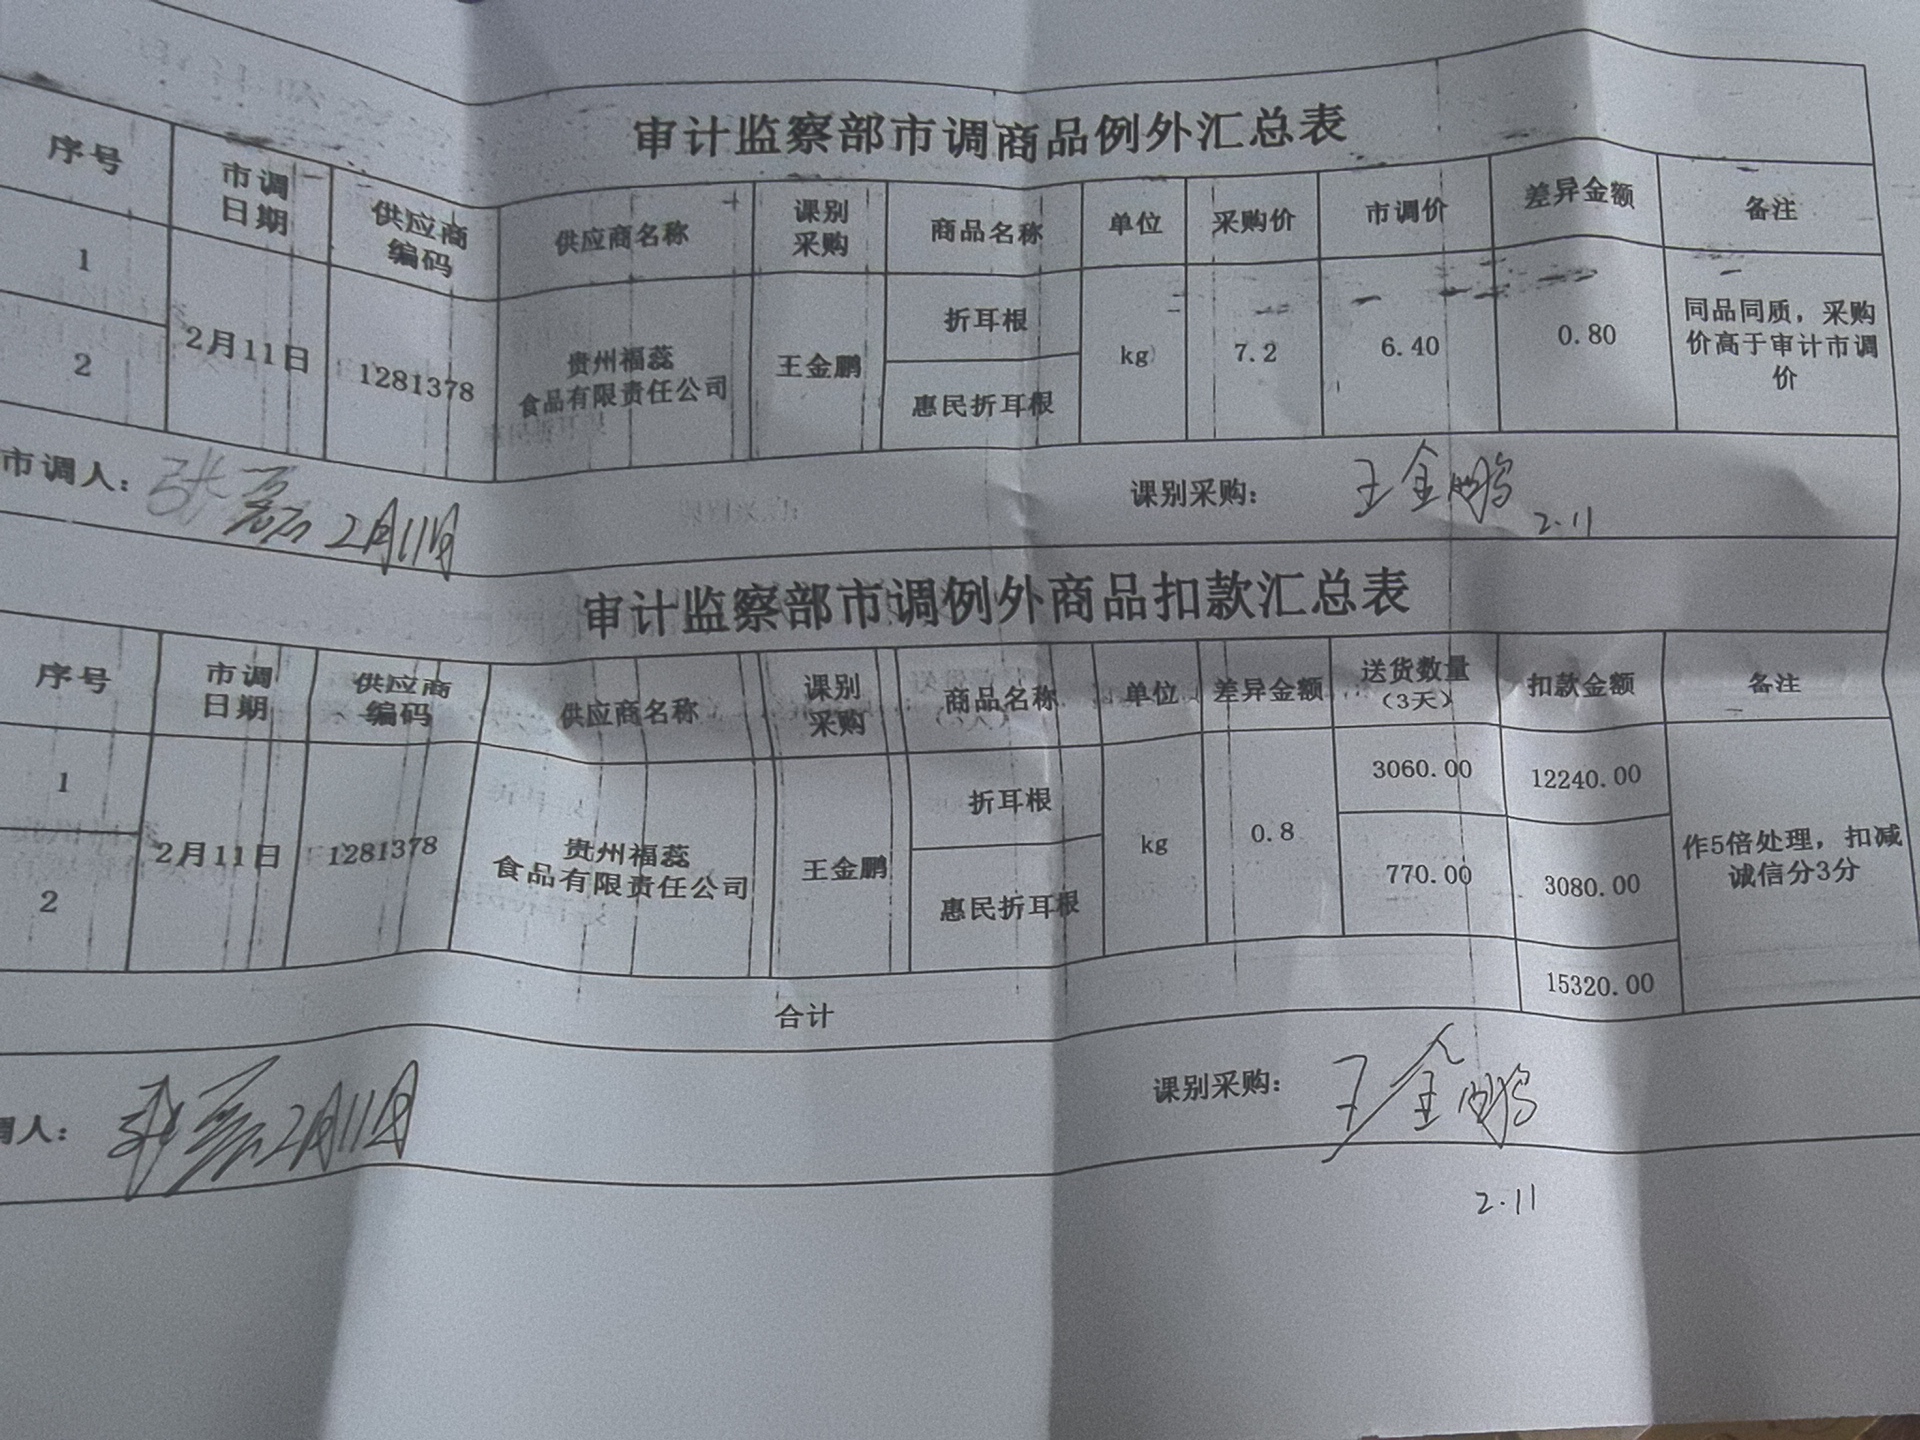 审计监察部市调商品例外汇总表
序号 市调日期 供应商编码 供应商名称 课别采购 商品名称 单位 采购价 市调价 差异金额 备注
1 2月11日 1281378 贵州福蕊食品有限责任公司 王金鹏 折耳根 kg 7.2 6.40 0.80 同品同质，采购价高于审计市调价
2 惠民折耳根
市调人： 张磊 2月11日 课别采购： 王金鹏 2.11
审计监察部市调例外商品扣款汇总表
序号 市调日期 供应商编码 供应商名称 课别采购 商品名称 单位 差异金额 送货数量（3天） 扣款金额 备注
1 2月11日 1281378 贵州福蕊食品有限责任公司 王金鹏 折耳根 kg 0.8 3060.00 12240.00 作5倍处理，扣减诚信分3分
2 惠民折耳根 770.00 3080.00
合计 15320.00
调人： 张磊 2月11日 课别采购： 王金鹏
2.11